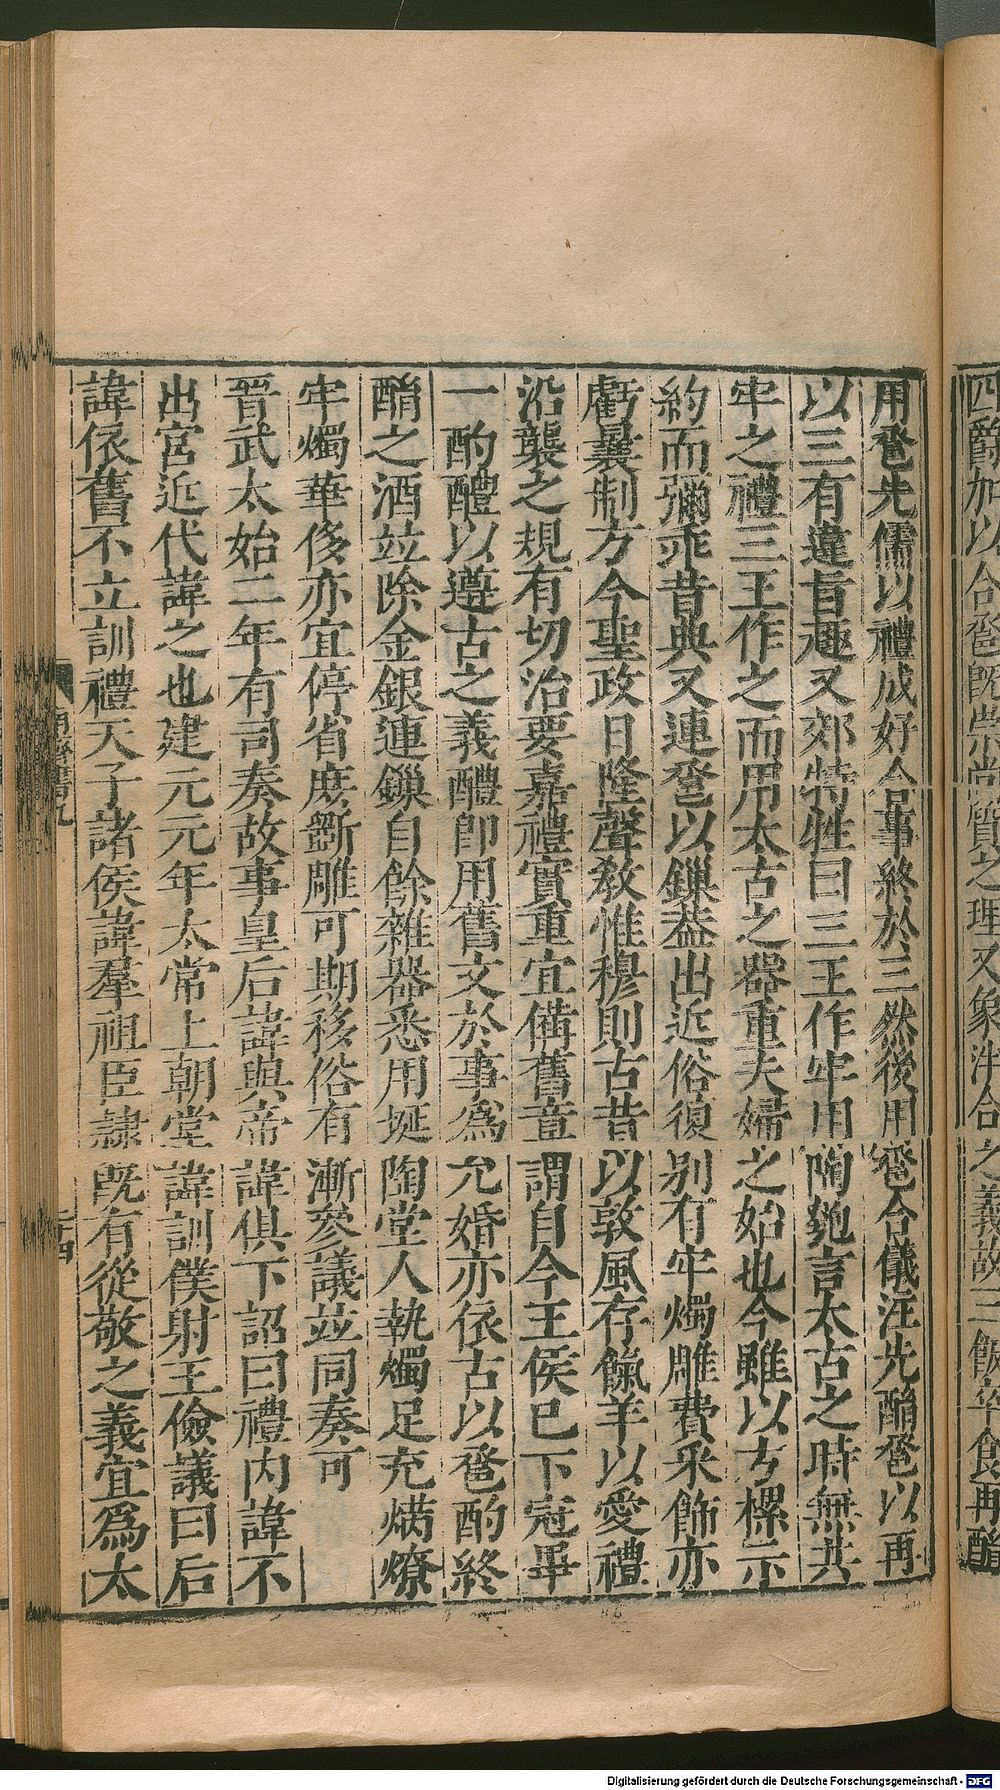 四爵加以合卺旣崇尚質之理又象泮合之義故三飯卒食再酳
用卺先儒以禮成好合事終於三然後用卺合儀注先酳卺以再
以三有違旨趣又郊特牲曰三王作牢用陶匏言太古之時無共
牢之禮三王作之而用太古之器重夫婦之始也今雖以方樏示
約而彌乖昔典又連卺以鏁蓋出近俗復别有牢燭雕費采飾亦
虧曩制方今聖政日隆聲敎惟穆則古昔以敦風存餼羊以愛禮
沿襲之規有切治要嘉禮實重宜備舊章謂自今王侯已下冠畢
一酌醴以遵古之義醴即用舊文於事爲允婚亦依古以卺酌終
酳之酒竝除金銀連鏁自餘雜器悉用埏陶堂人執燭足充爇燎
牢燭華侈亦宜停省庶斲雕可期移俗有漸參議竝同奏可
晉武太始二年有司奏故事皇后諱與帝諱俱下詔曰禮内諱不
出宮近代諱之也建元元年太常上朝堂諱訓僕射王儉議曰后
諱依舊不立訓禮天子諸侯諱羣祖臣隷旣有從敬之義宜爲太
南齊書九
二十四
Digitalisierung gefördert durch die Deutsche Forschungsgemeinschaft - DFG